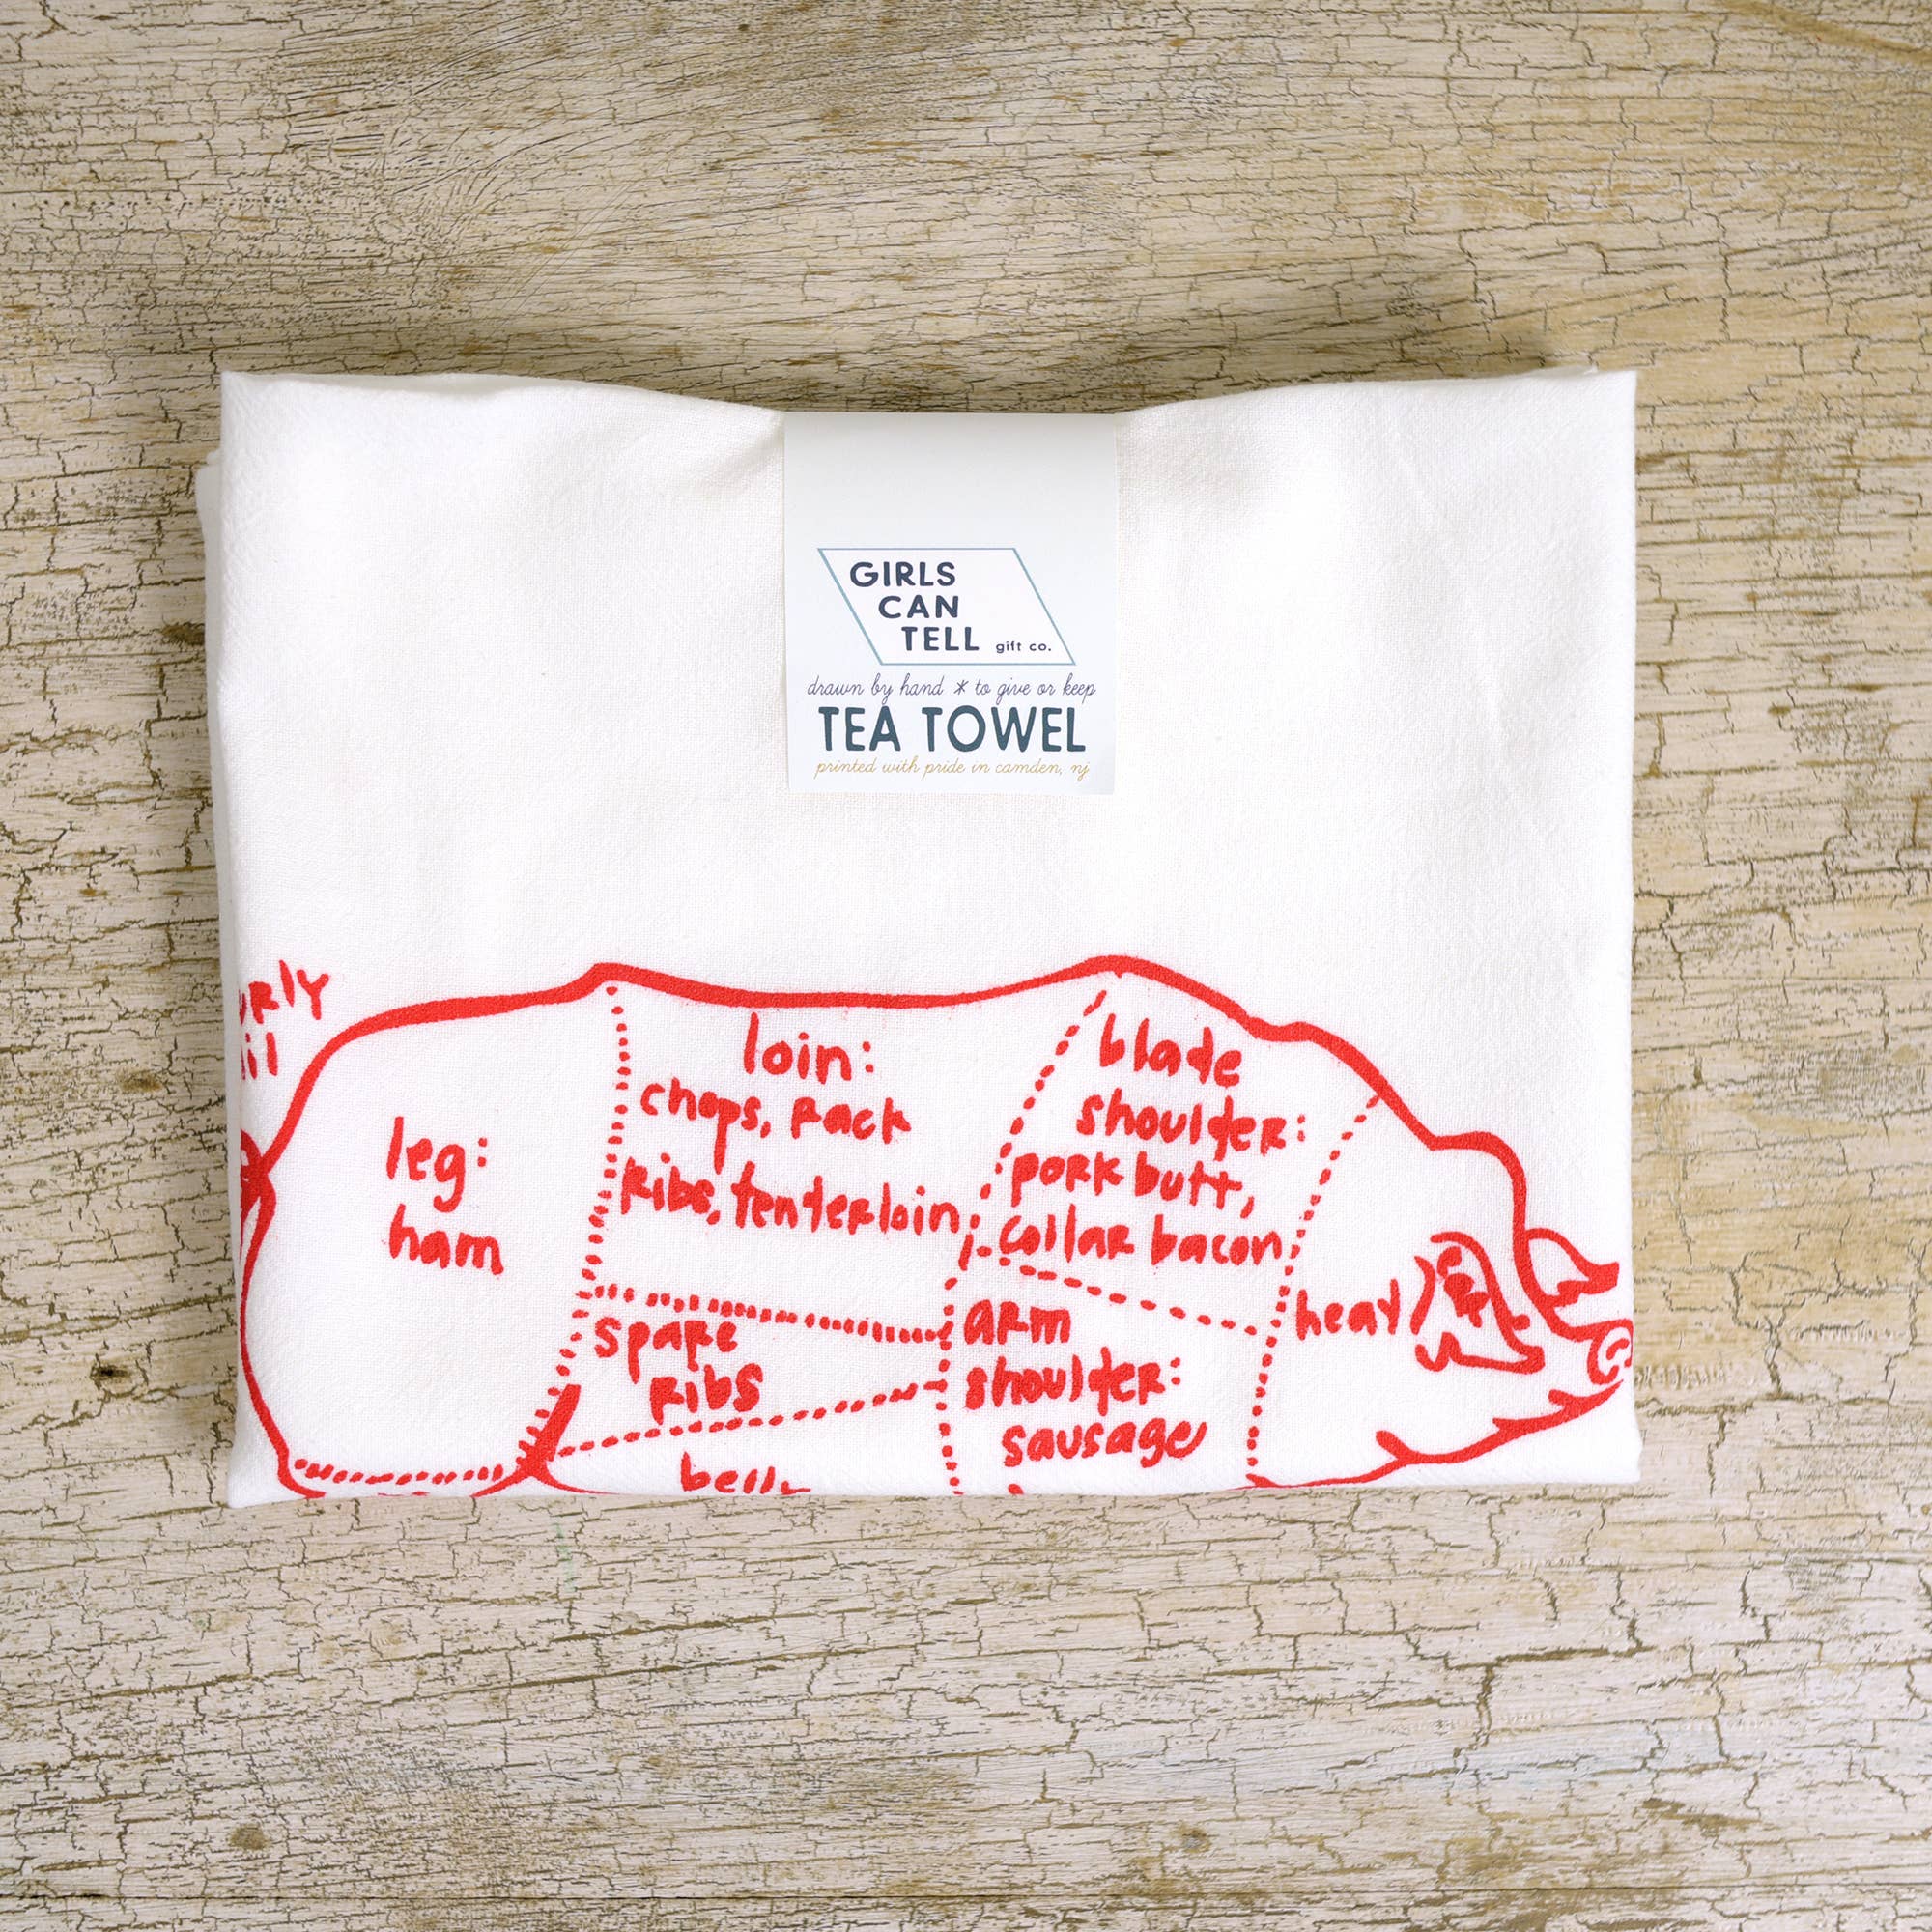 GIRLS
CAN
TELL gift co.
drawn by hand * to give or keep
TEA TOWEL
printed with pride in camden, nj
loin:
chops, rack
ribs, tenderloin
blade
shoulder:
pork butt,
collar bacon
leg:
ham
spare
ribs
arm
shoulder:
sausage
head
ear
belly